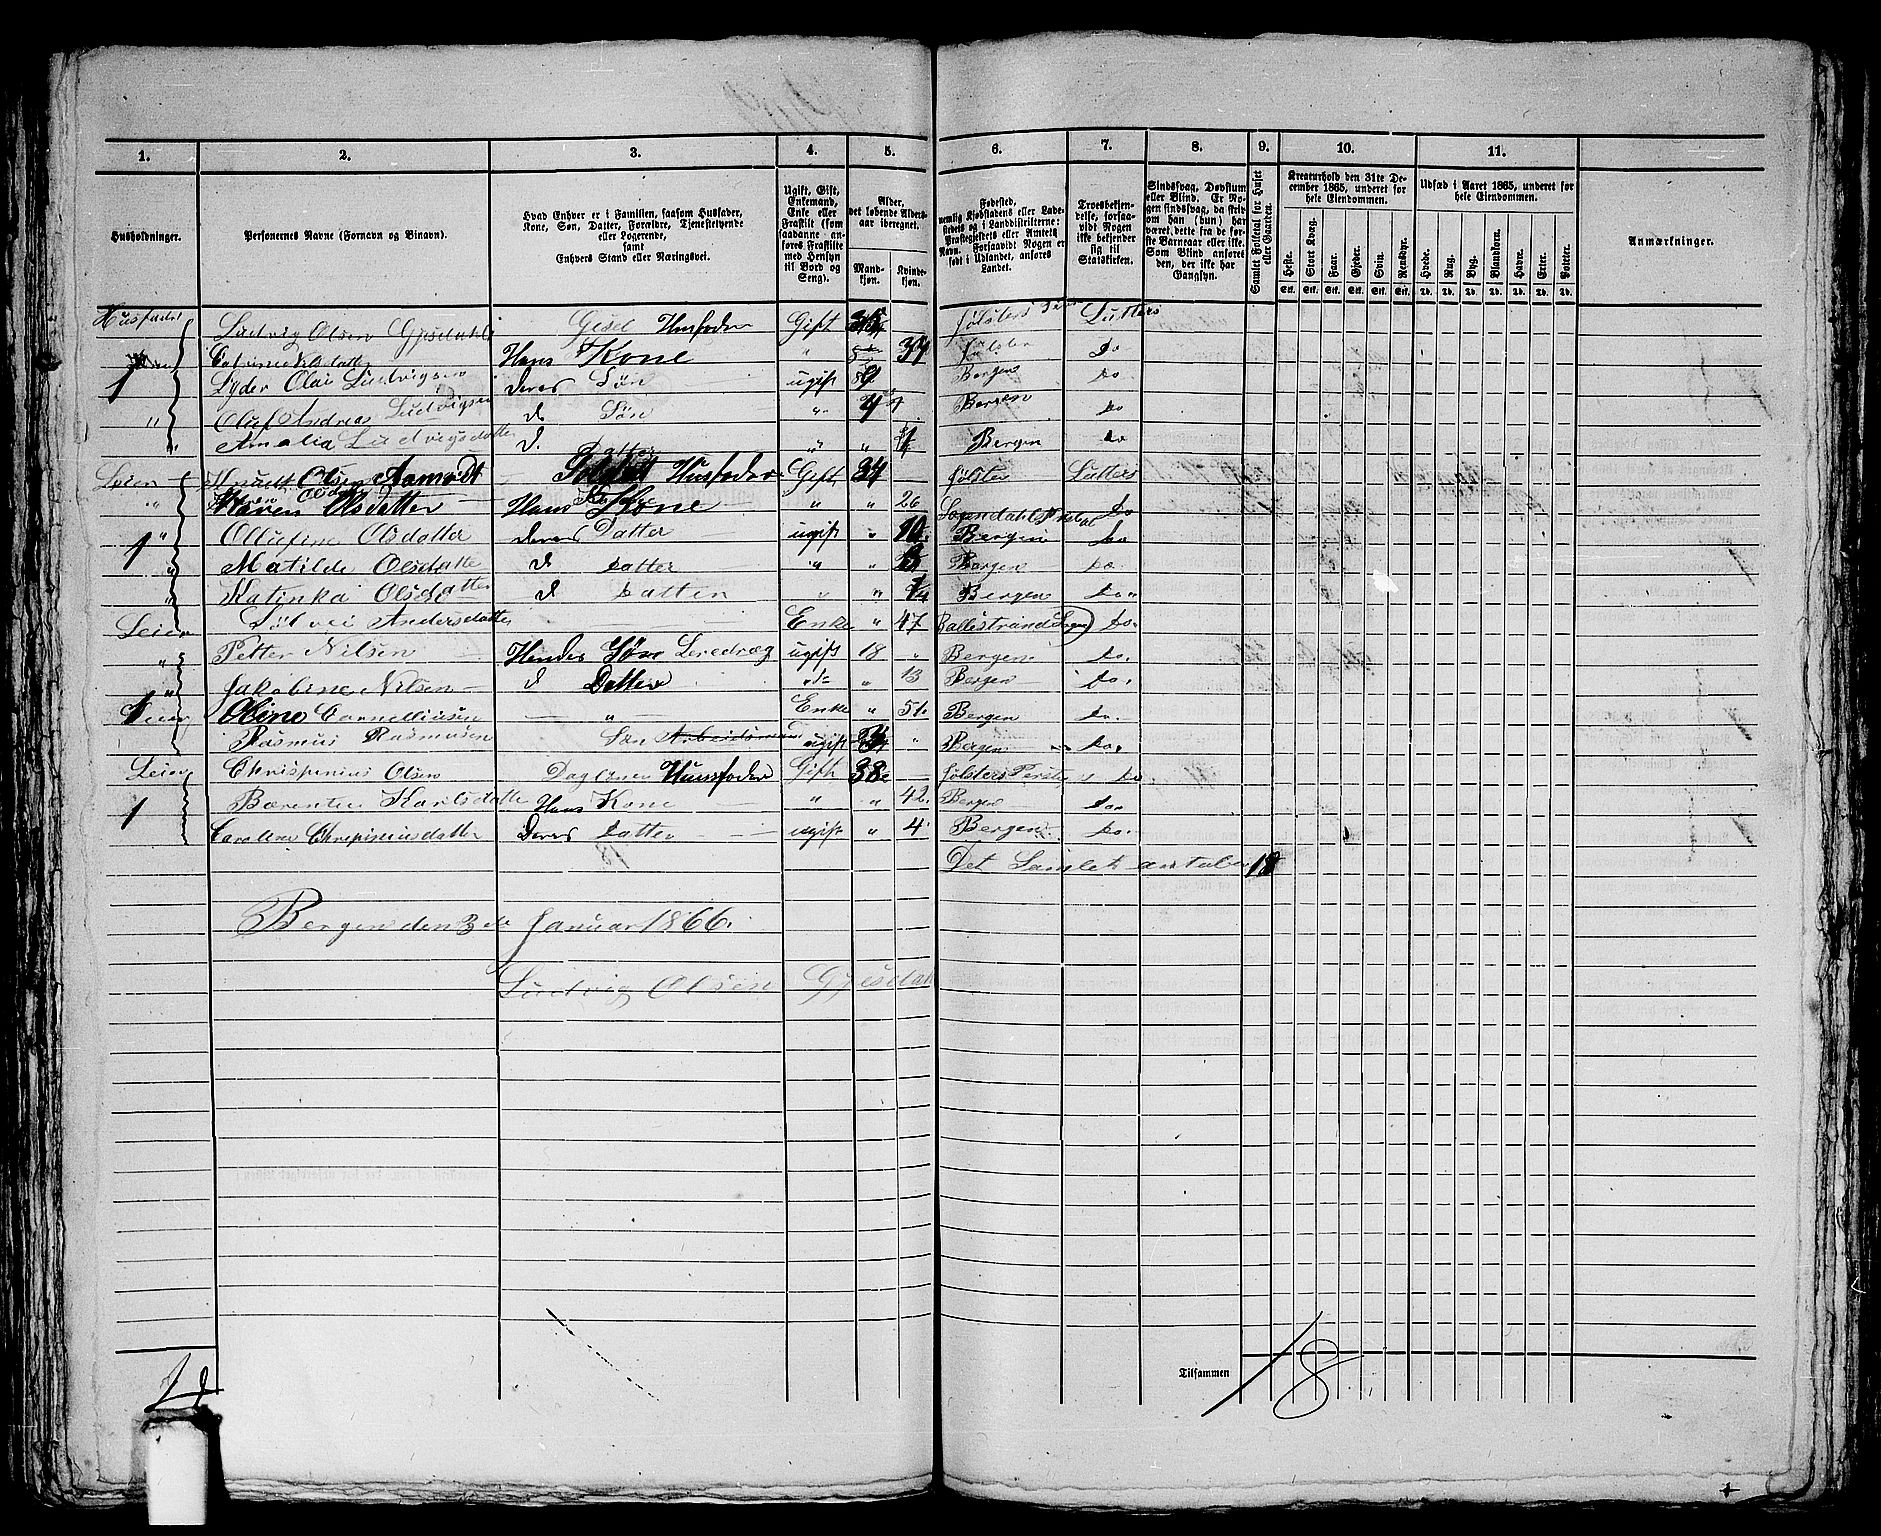 1. 2. 3. 4. 5. 6. 7. 8. 9. 10. 11.
Husholdninger.
Personernes Navne (Fornavn og Binavn).
Hvad Enhver er i Familien, saasom Husfader, Kone, Søn, Datter, Forældre, Tjenestetyende eller Logerende, samt Enhvers Stand eller Næringsvei.
Ugift, Gift, Enkemand, Enke eller Fraskilt (som saadanne anføres Fraskilte med Hensyn til Bord og Seng).
Alder, det løbende Aldersaar iberegnet.
Mandkjøn. Kvindekjøn.
Fødested, nemlig Kjøbstadens eller Ladestedets og i Landdistrikterne: Præstegjeldets eller Amtets Navn. Forsaavidt Nogen er født i Udlandet, anføres Landet.
Troesbekjendelse, forsaavidt Nogen ikke bekjender sig til Statskirken.
Sindssvag, Døvstum eller Blind. Er Nogen sindssvag, da skrives om han (hun) har været dette fra de første Barneaar eller ikke. Som Blind ansees den, der ikke har Gangsyn.
Samlet Folketal for Huset eller Gaarden.
Kreaturhold den 31te December 1865, underet for hele Eiendommen.
Heste. Stort Kvæg. Faar. Gjeder. Svin. Rensdyr.
Stk. Stk. Stk. Stk. Stk. Stk.
Udsæd i Aaret 1865, underet for hele Eiendommen.
Hvede. Rug. Byg. Blandkorn. Havre. Erter. Poteter.
Td. Td. Td. Td. Td. Td. Td.
Anmærkninger.
Ludvig Olsen Husfader Gift Lutters
Nilsdatter Hans Kone " 37 Do
1 Lyder Olai Ludvigsen deres Søn ugift 9 Bergen Do
" Oluf Andreas Ludvigsen d Søn " 4 Bergen Do
" Amalia Ludvigsdatter d. Datter " " 1 Bergen Do
Leier Olsen Husfader Gift 34 Jølster Lutters
" Karen Olsdatter Hans Kone " " 26 Do
1 " Ollufine Olsdatter Deres Datter ugift " 10 Bergen Do
" Matilde Olsdatte d Datter " " Bergen Do.
" Katinka Olsdatter d Datter " " Bergen Do "
Leier Andersdatter Enke " 47 Do.
" Petter Nilsen Hendes Søn ugift 18 " Bergen Do.
" Jakobine Nilsen d Datter " 13 Bergen Do.
Leier Oline Cornelliusen " Enke " 51. Bergen Do.
Rasmus Rasmusen Søn Arbeidsmand ugift " Bergen Do.
Leier Chrispinius Olsen Husfader Gift 38 Jølsters Do
1 Karlsdatte Hans Kone " " 42. Bergen Do.
Caroline Chrispiniusdatter Deres Datter ugift " 4 Bergen Do.
Det Samlet antal er 18
Bergen den 3de Januar 1866.
Ludvig Olsen
Tilsammen 18